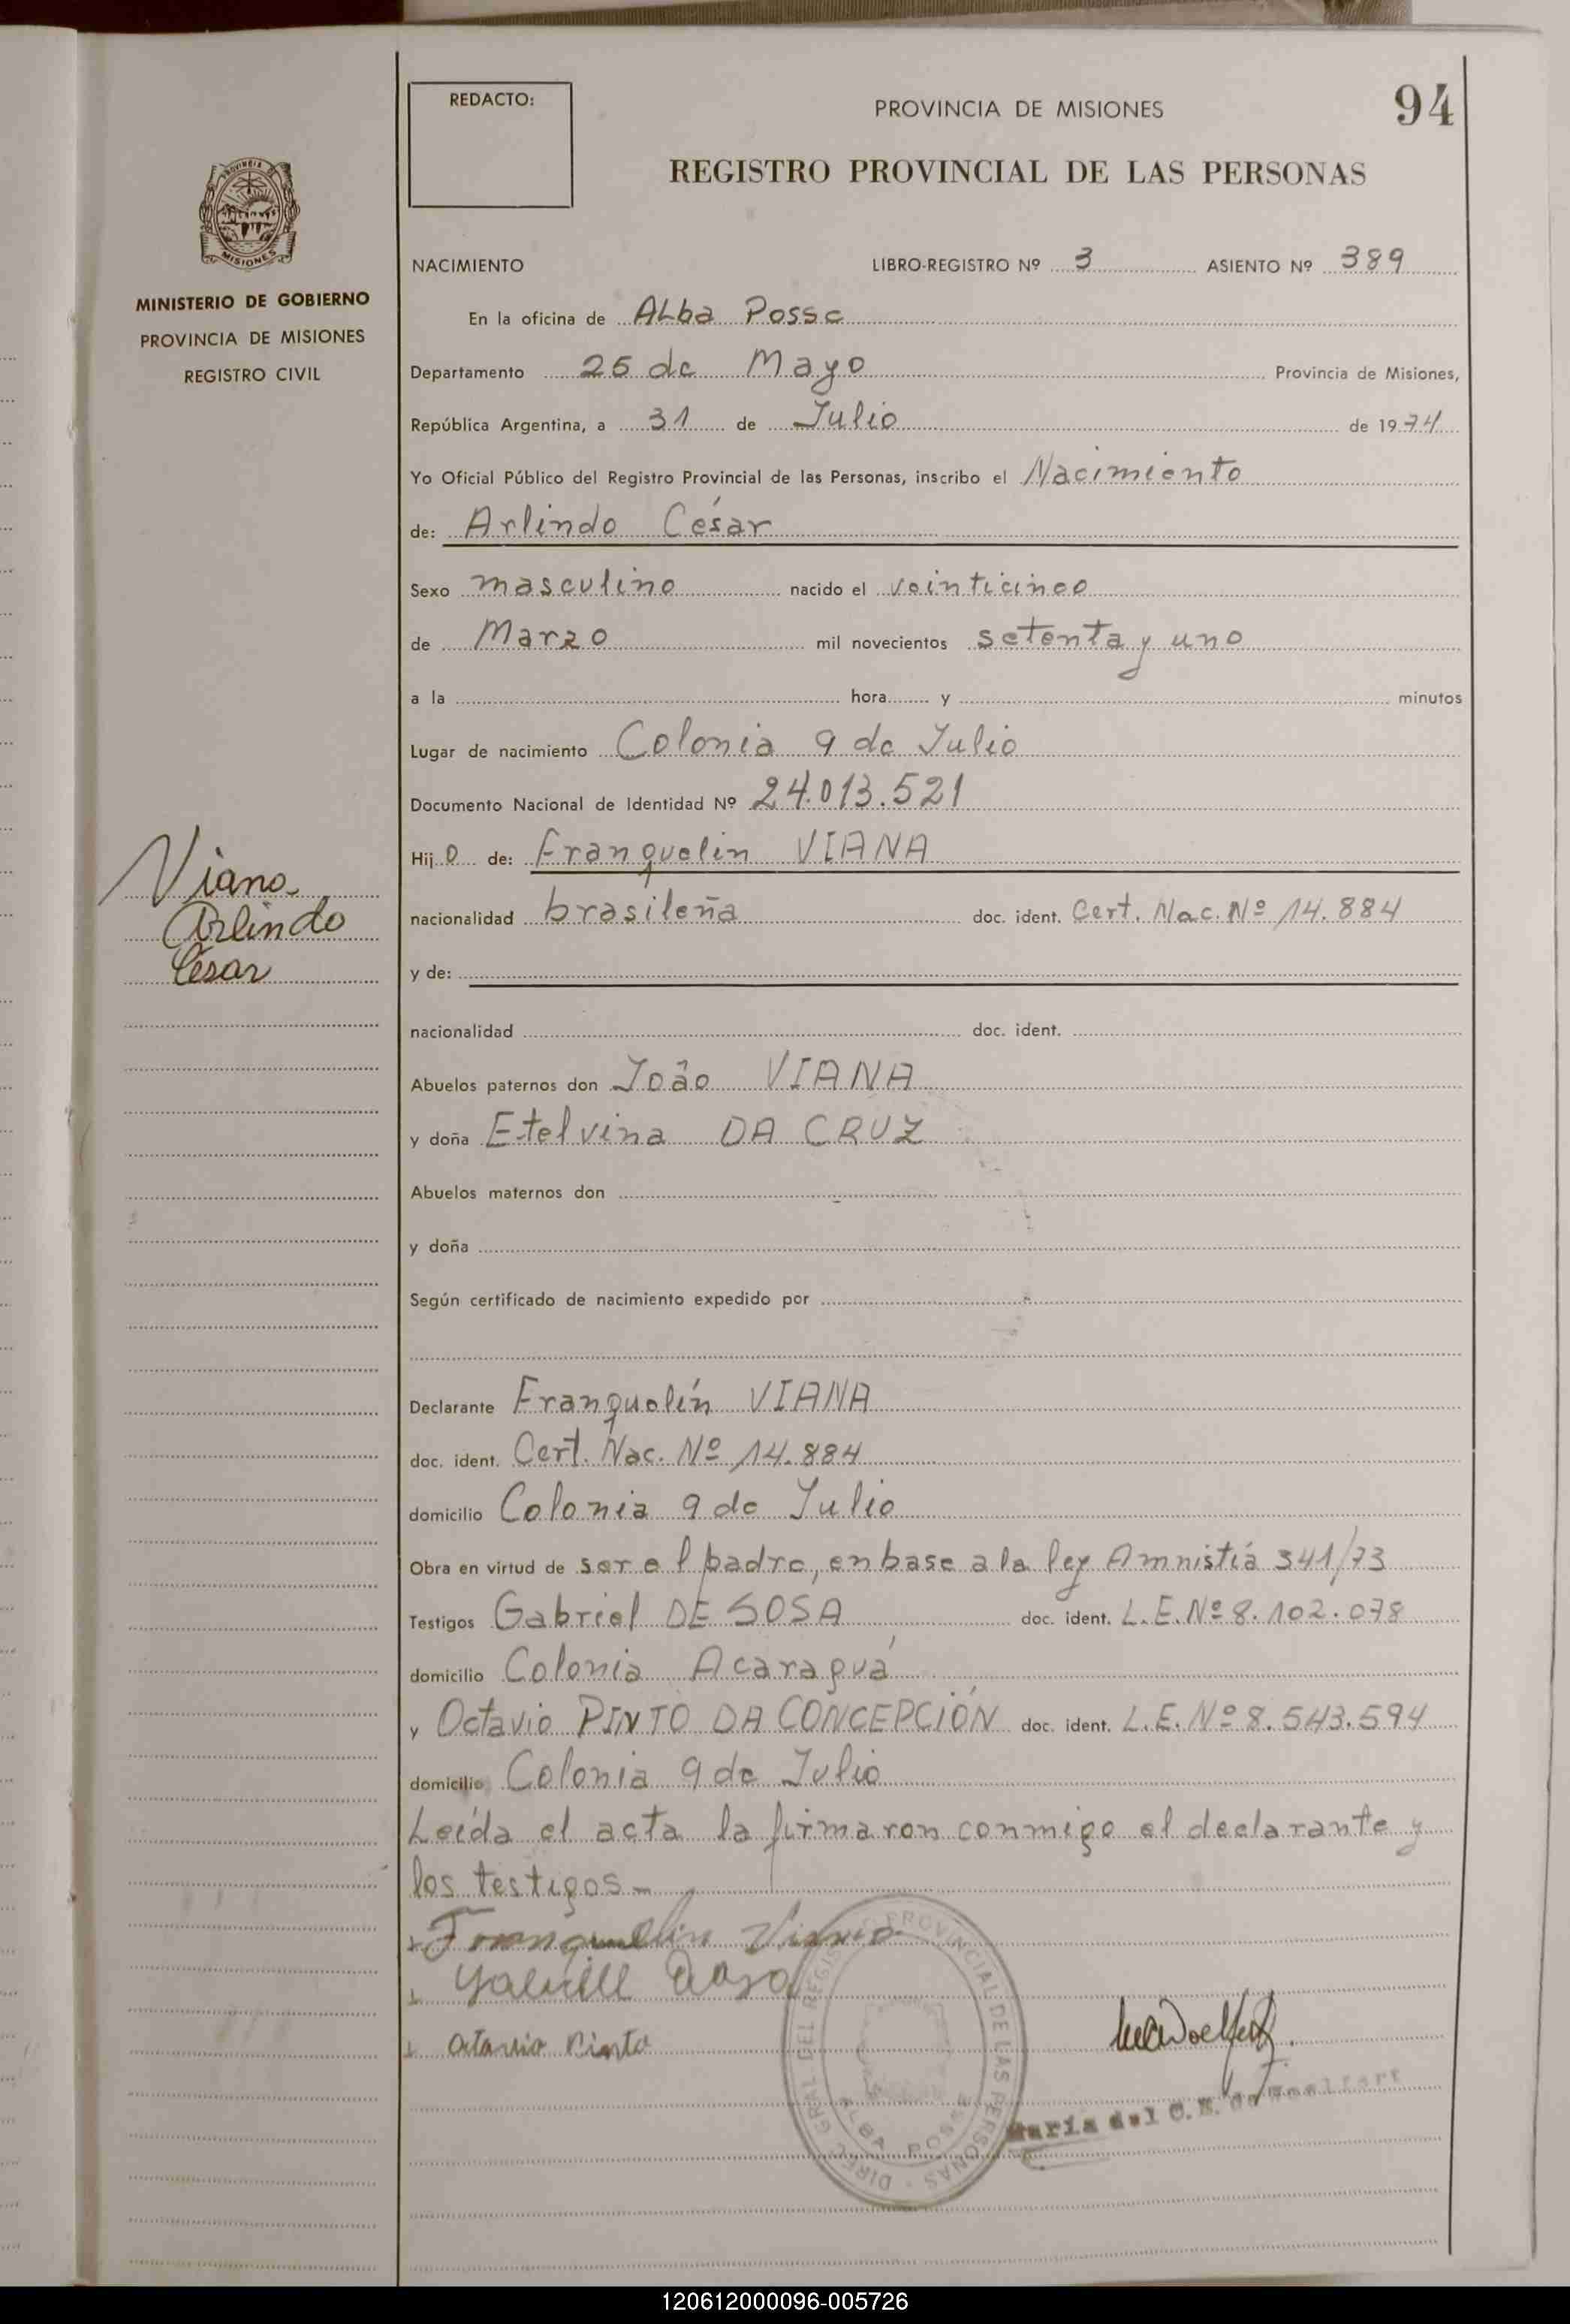 94
REDACTO:
PROVINCIA DE MISIONES
REGISTRO PROVINCIAL DE LAS PERSONAS
PROVINCIA
MISIONES
MINISTERIO DE GOBIERNO
PROVINCIA DE MISIONES
REGISTRO CIVIL
NACIMIENTO LIBRO-REGISTRO Nº 3 ASIENTO Nº 389
En la oficina de Alba Posse
Departamento 25 de Mayo Provincia de Misiones,
República Argentina, a 31 de Julio de 1974
Yo Oficial Público del Registro Provincial de las Personas, inscribo el Nacimiento
de: Arlindo César
Sexo masculino nacido el veinticinco
de Marzo mil novecientos setenta y uno
a la hora y minutos
Lugar de nacimiento Colonia 9 de Julio
Documento Nacional de Identidad Nº 24.013.521
Hijo de: Franquelin VIANA
nacionalidad brasileña doc. ident. Cert. Nac. Nº 14.884
y de:
nacionalidad doc. ident.
Abuelos paternos don João VIANA
y doña Etelvina DA CRUZ
Abuelos maternos don
y doña
Según certificado de nacimiento expedido por
Declarante Franquelín VIANA
doc. ident. Cert. Nac. Nº 14.884
domicilio Colonia 9 de Julio
Obra en virtud de ser el padre, en base a la ley Amnistía 341/73
Testigos Gabriel DE SOSA doc. ident. L.E. Nº 8.102.078
domicilio Colonia Acaraguá
y Octavio PINTO DA CONCEPCIÓN doc. ident. L.E. Nº 8.543.594
domicilio Colonia 9 de Julio
Leída el acta la firmaron conmigo el declarante y
los testigos.-
Viana
Arlindo
Cesar
Franquelin Viana
Otavio Pinto
DIREC. GRAL DEL REGISTRO PROVINCIAL DE LAS PERSONAS
ALBA POSSE
María del C. M. de Woelfert
120612000096-005726